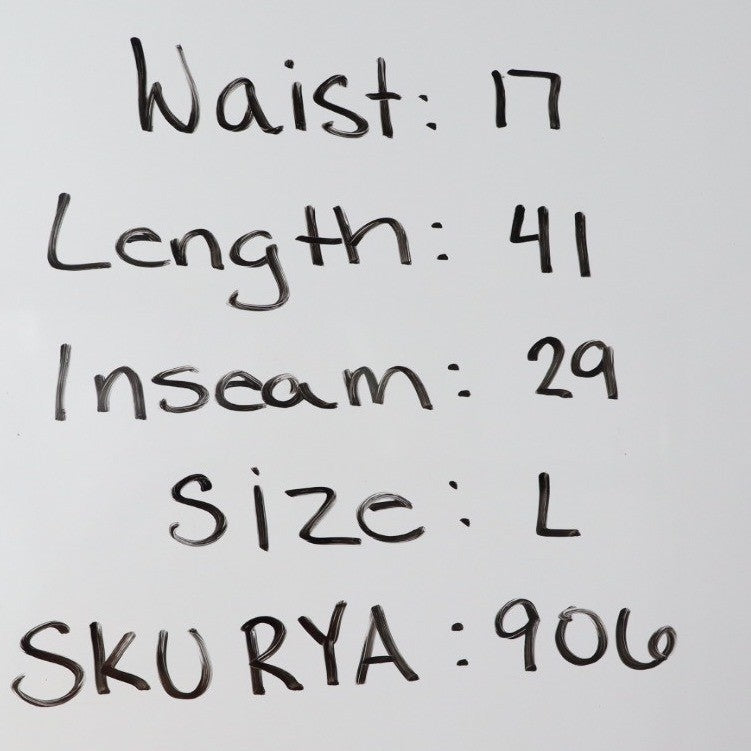 Waist: 17
Length: 41
Inseam: 29
Size: L
SKU RYA: 906